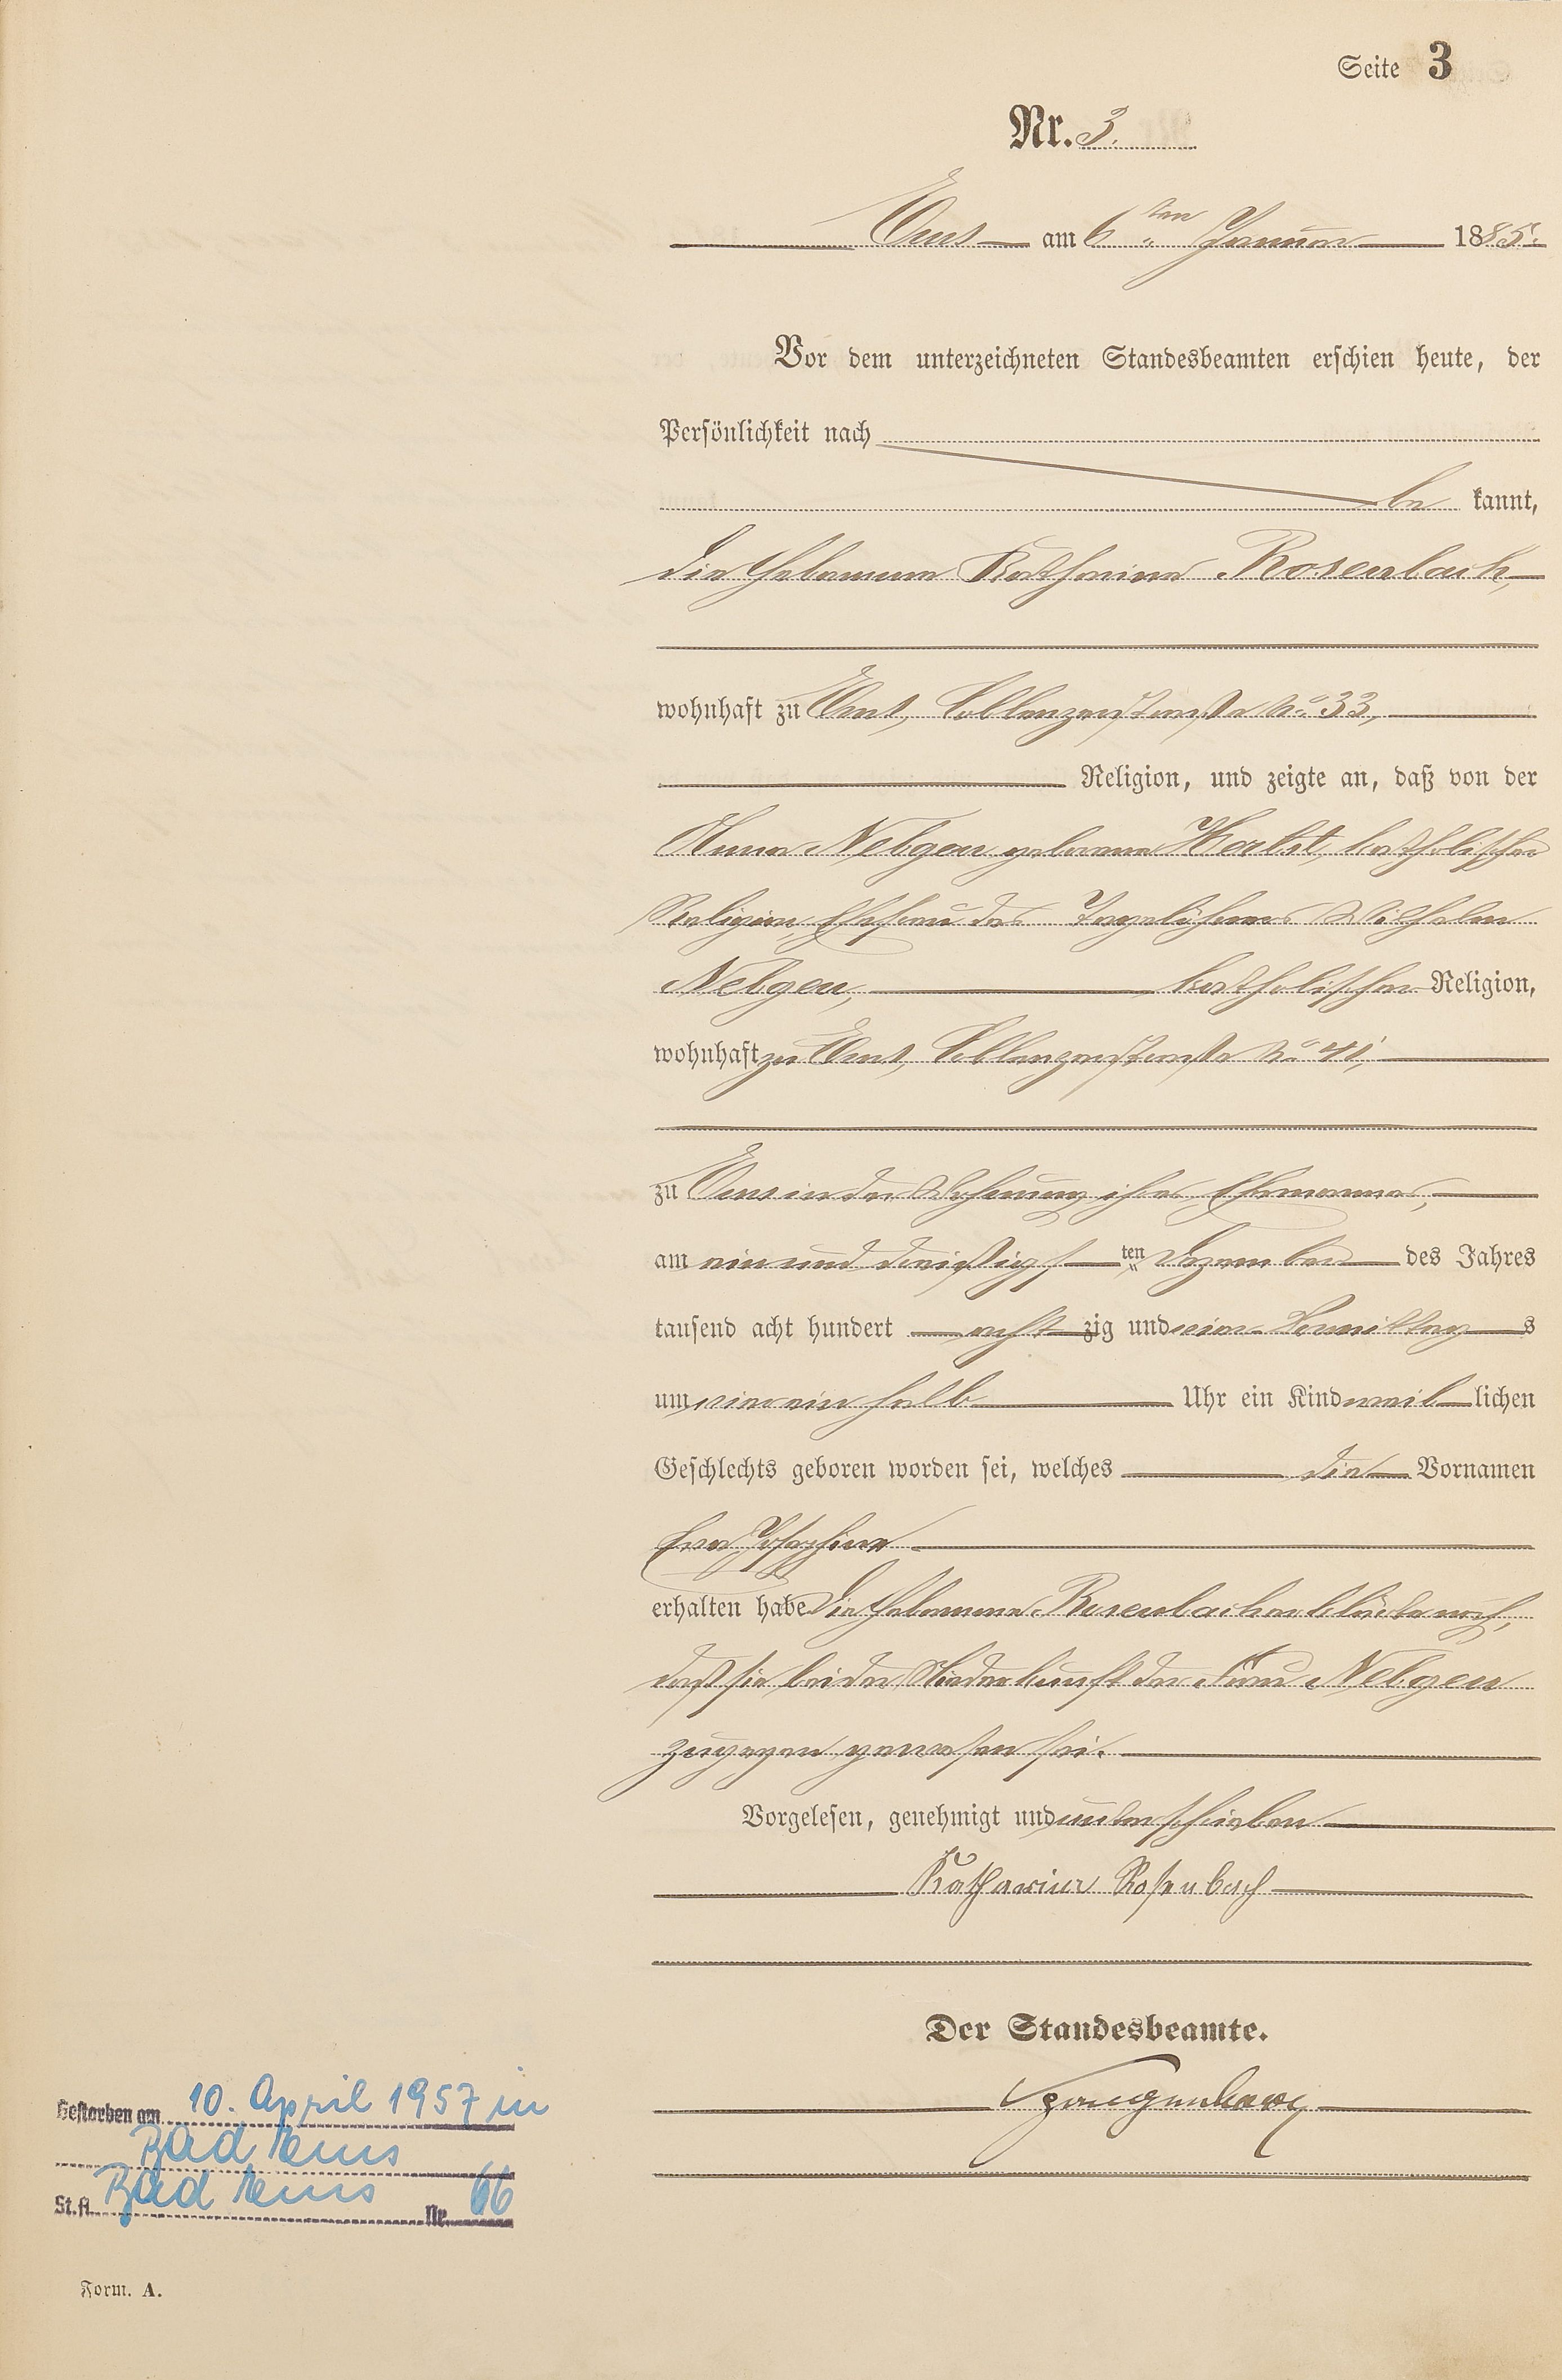 Seite 3
Nr. 3.
Ems am 6ten Januar 1885.
Vor dem unterzeichneten Standesbeamten erschien heute, der
Persönlichkeit nach
be kannt,
die Hebamme Katharina Rosenbach,
wohnhaft zu Ems, Coblenzerstraße No 33,
Religion, und zeigte an, daß von der
Anna Nebgen geborene Herbst, katholischer
Religion, Ehefrau des Tagelöhners Wilhelm
Nebgen, katholischer Religion,
wohnhaft zu Ems, Coblenzerstraße No 41,
zu Ems in der Wohnung ihres Ehemannes,
am ein und dreißigs ten Dezember des Jahres
tausend acht hundert acht zig und vier Vormittag s
um vier ein halb Uhr ein Kind weib lichen
Geschlechts geboren worden sei, welches die Vornamen
Eva Josephine
erhalten habe Die Hebamme Rosenbach erklärte noch,
daß sie bei der Niederkunft der Frau Nebgen
zugegen gewesen sei.
Vorgelesen, genehmigt und unterschrieben
Katharina Rosenbach
Der Standesbeamte.
Gestorben am 10. April 1957 in
Bad Ems
St.A. Bad Ems Nr. 66
Form. A.